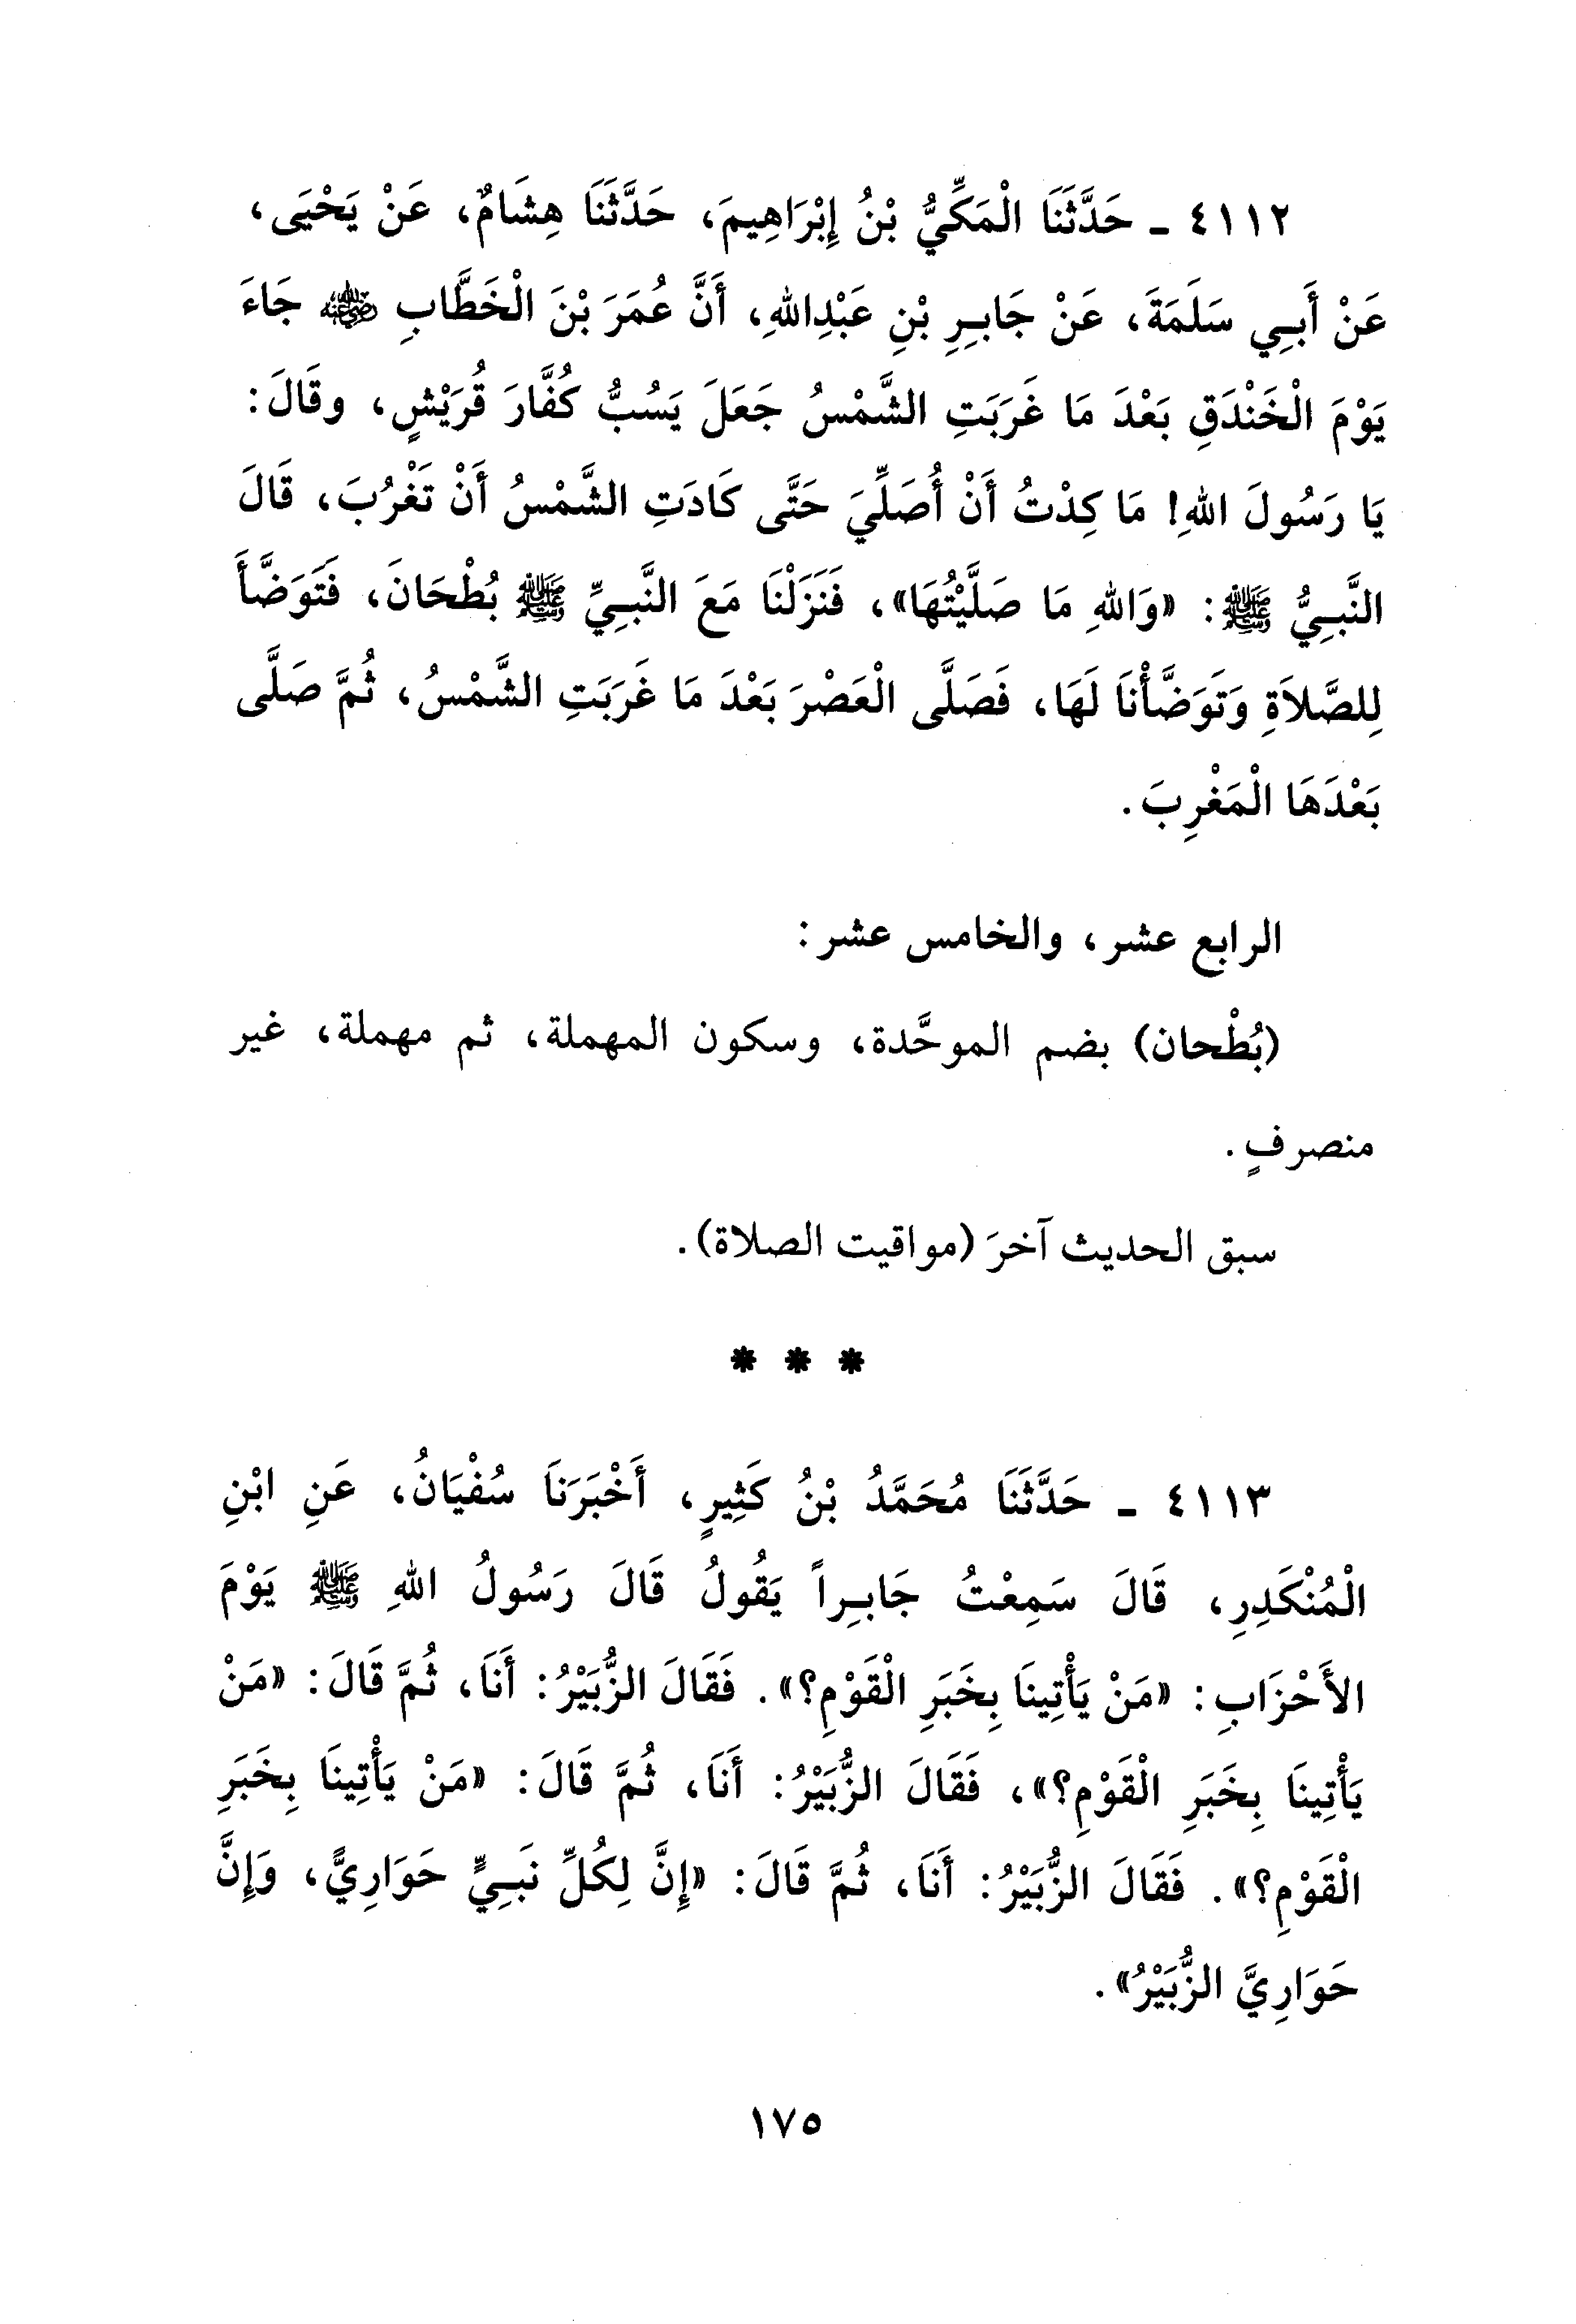 ٤١١٢ ـ حَدَّثَنَا الْمَكِّيُّ بْنُ إِبْرَاهِيمَ، حَدَّثَنَا هِشَامٌ، عَنْ يَحْيَى،
عَنْ أَبِي سَلَمَةَ، عَنْ جَابِرِ بْنِ عَبْدِاللهِ، أَنَّ عُمَرَ بْنَ الْخَطَّابِ رضي الله عنه جَاءَ
يَوْمَ الْخَنْدَقِ بَعْدَ مَا غَرَبَتِ الشَّمْسُ جَعَلَ يَسُبُّ كُفَّارَ قُرَيْشٍ، وقَالَ:
يَا رَسُولَ اللهِ! مَا كِدْتُ أَنْ أُصَلِّيَ حَتَّى كَادَتِ الشَّمْسُ أَنْ تَغْرُبَ، قَالَ
النَّبِيُّ ﷺ: «وَاللهِ مَا صَلَّيْتُهَا»، فَنَزَلْنَا مَعَ النَّبِيِّ ﷺ بُطْحَانَ، فَتَوَضَّأَ
لِلصَّلاَةِ وَتَوَضَّأْنَا لَهَا، فَصَلَّى الْعَصْرَ بَعْدَ مَا غَرَبَتِ الشَّمْسُ، ثُمَّ صَلَّى
بَعْدَهَا الْمَغْرِبَ.
الرابع عشر، والخامس عشر:
(بُطْحان) بضم الموحَّدة، وسكون المهملة، ثم مهملة، غير
منصرفٍ.
سبق الحديث آخرَ (مواقيت الصلاة).
* * *
٤١١٣ ـ حَدَّثَنَا مُحَمَّدُ بْنُ كَثِيرٍ، أَخْبَرَنَا سُفْيَانُ، عَنِ ابْنِ
الْمُنْكَدِرِ، قَالَ سَمِعْتُ جَابِراً يَقُولُ قَالَ رَسُولُ اللهِ ﷺ يَوْمَ
الأَحْزَابِ: «مَنْ يَأْتِينَا بِخَبَرِ الْقَوْمِ؟». فَقَالَ الزُّبَيْرُ: أَنَا، ثُمَّ قَالَ: «مَنْ
يَأْتِينَا بِخَبَرِ الْقَوْمِ؟»، فَقَالَ الزُّبَيْرُ: أَنَا، ثُمَّ قَالَ: «مَنْ يَأْتِينَا بِخَبَرِ
الْقَوْمِ؟». فَقَالَ الزُّبَيْرُ: أَنَا، ثُمَّ قَالَ: «إِنَّ لِكُلِّ نَبِيٍّ حَوَارِيًّ، وَإِنَّ
حَوَارِيَّ الزُّبَيْرُ».
١٧٥